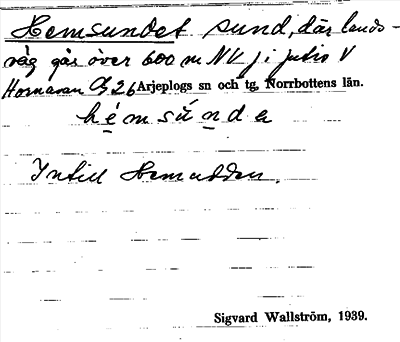 Hemsundet sund, där lands-
väg går över 600 m NV j i
Hornavan Arjeplogs sn och tg, Norrbottens län.
hémsúnde
Intill Hemudden.
Sigvard Wallström, 1939.